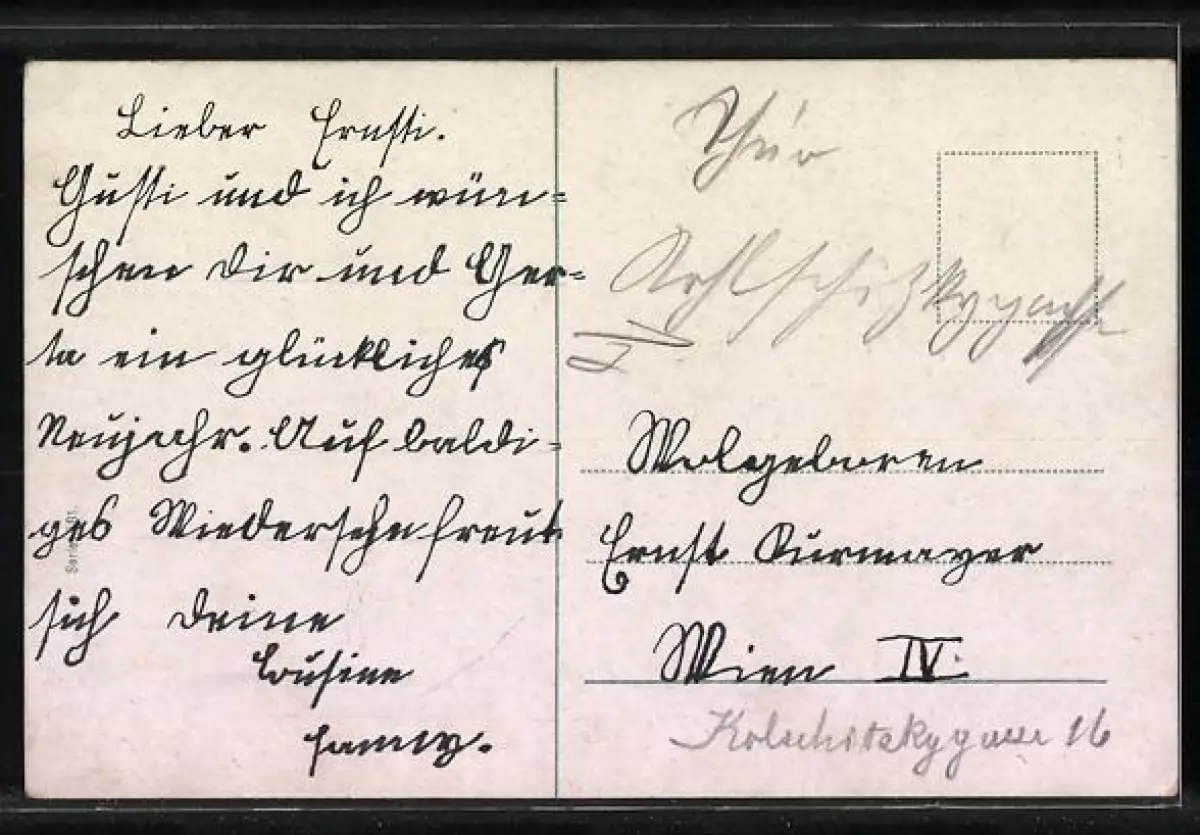 Lieber Ernsti.
Gusti und ich wün=
schen Dir und Ger=
ta ein glückliches
Neujahr. Auf baldi=
ges Wiedersehn freut
sich Deine
Cousine
Fanny.
Wolgeboren
Ernst Kurmayer
Wien IV.
Kolschitzkygasse 16